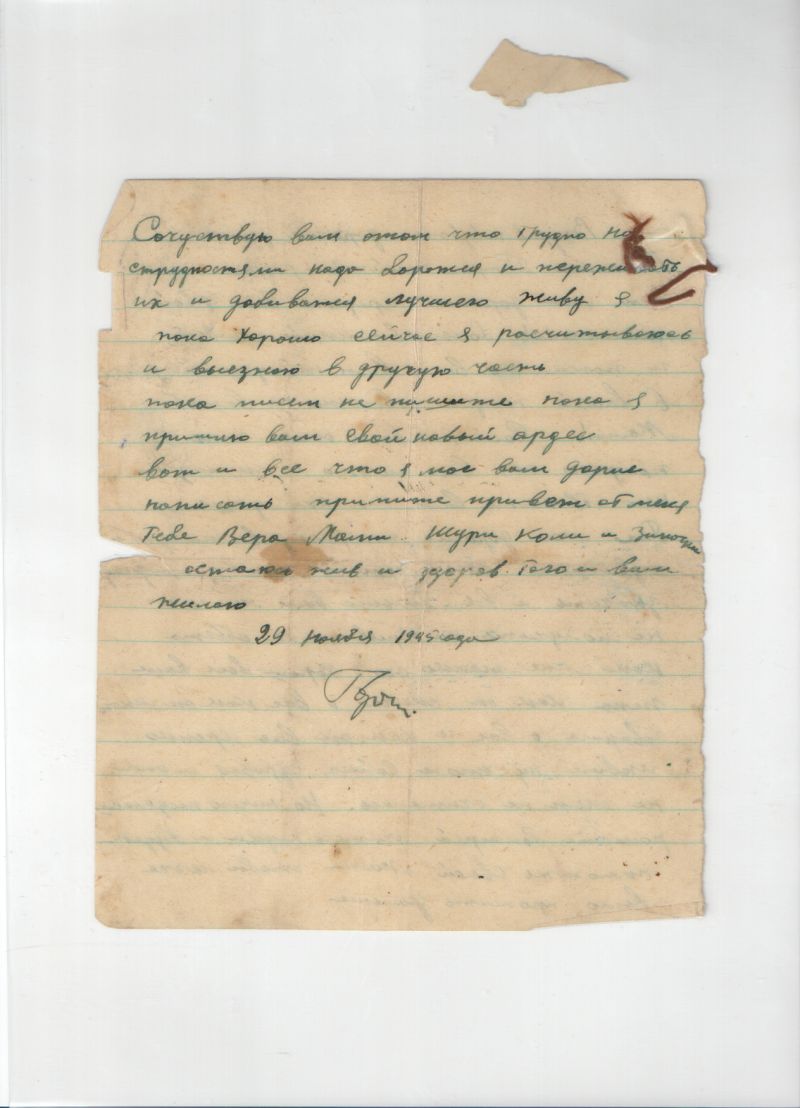 Сочуствую вам отом что трудно но
струдностями надо боротся и пережывать
их и добиватся лучшего живу я
пока хорошо сейчас я расчитываюсь
и выезжаю в другую часть
пока писем не пишите пока я
пришлю вам свой новый ардес
вот и все что я мог вам
написать примите привет от меня
Тебе Вера Мани Шури Коли и
остаюсь жив и здоров того и вам
жилаю
29 ноября 1945 года